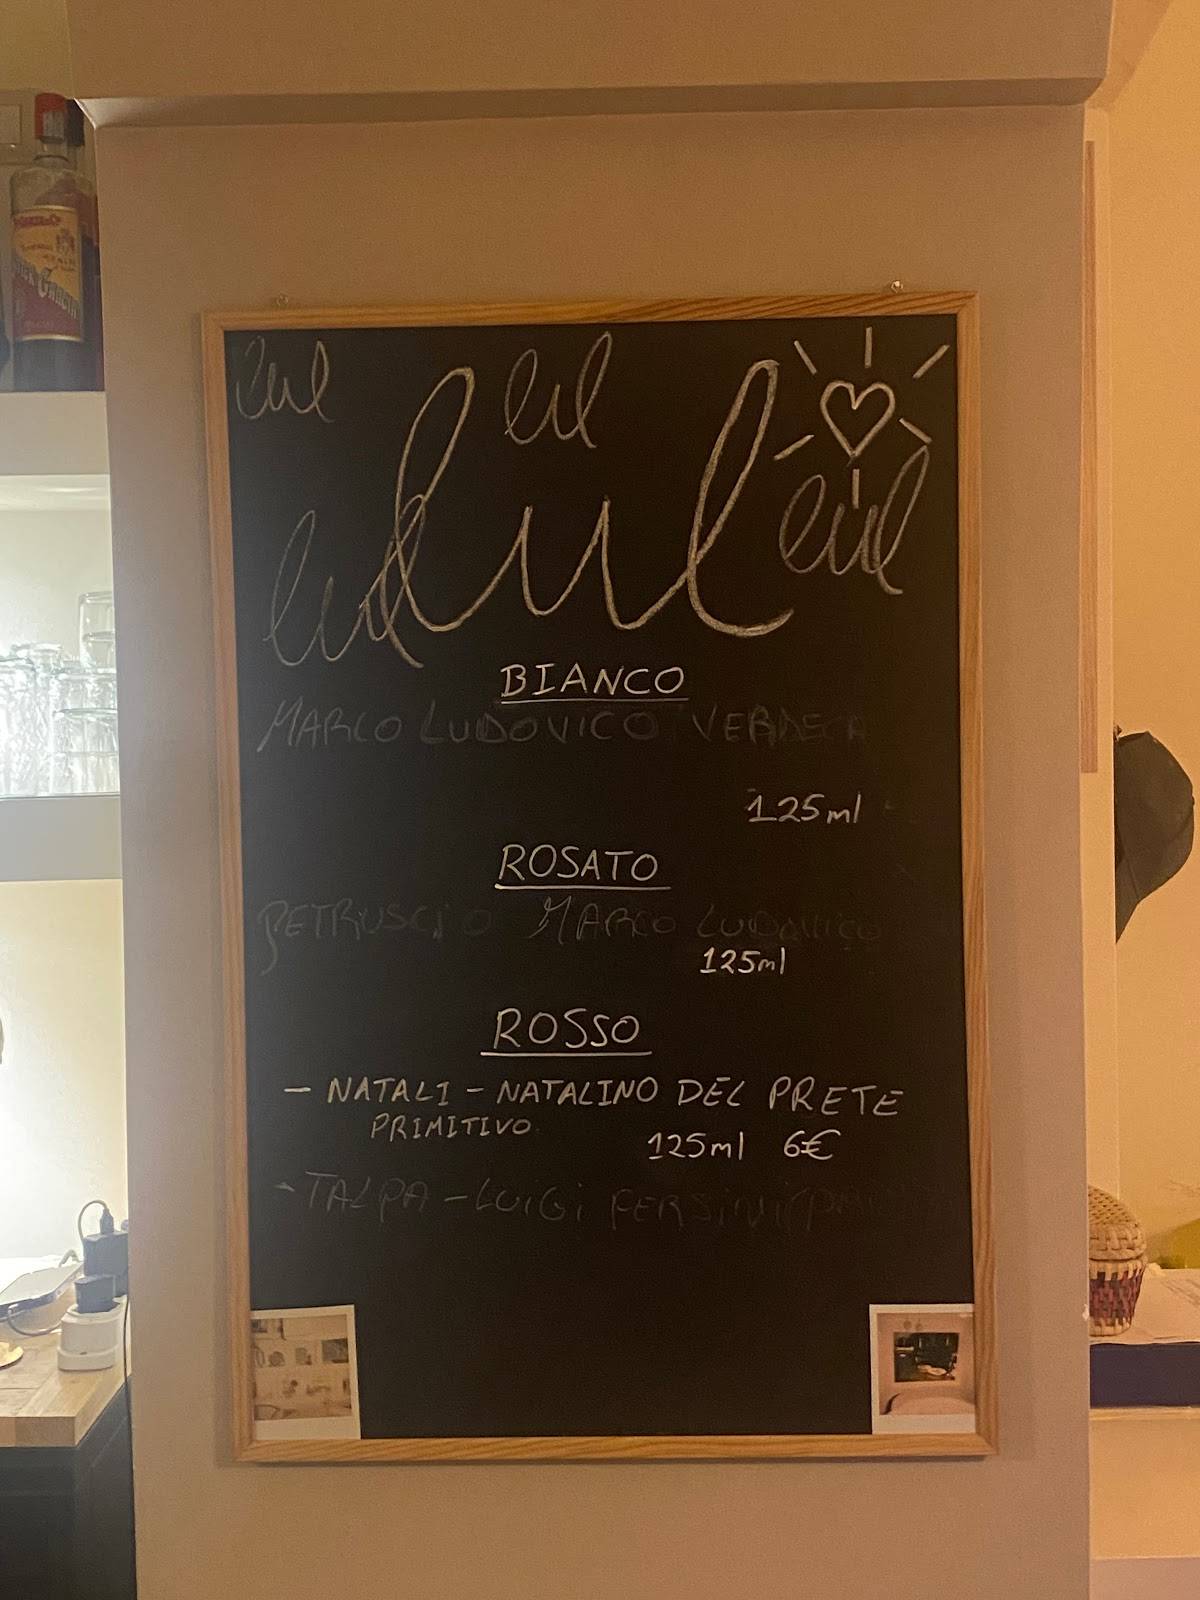 eul
eul
eul
eul
eul
BIANCO
MARCO LUDOVICO VERDECA
125ml
ROSATO
PETRUSCIO MARCO LUDOVICO
125ml
ROSSO
- NATALI - NATALINO DEL PRETE
PRIMITIVO
125ml 6€
- TALPA - LUIGI